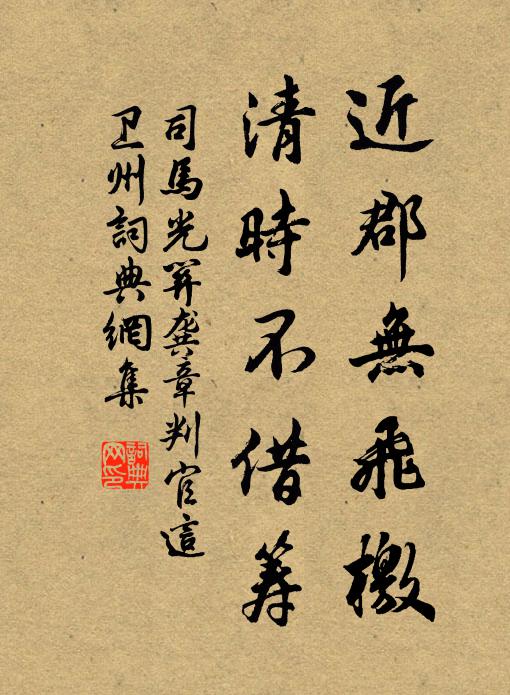 近郡無飛檄
清時不借筹
司馬光龔章判官這
卫州詞典網集
詞典
网印